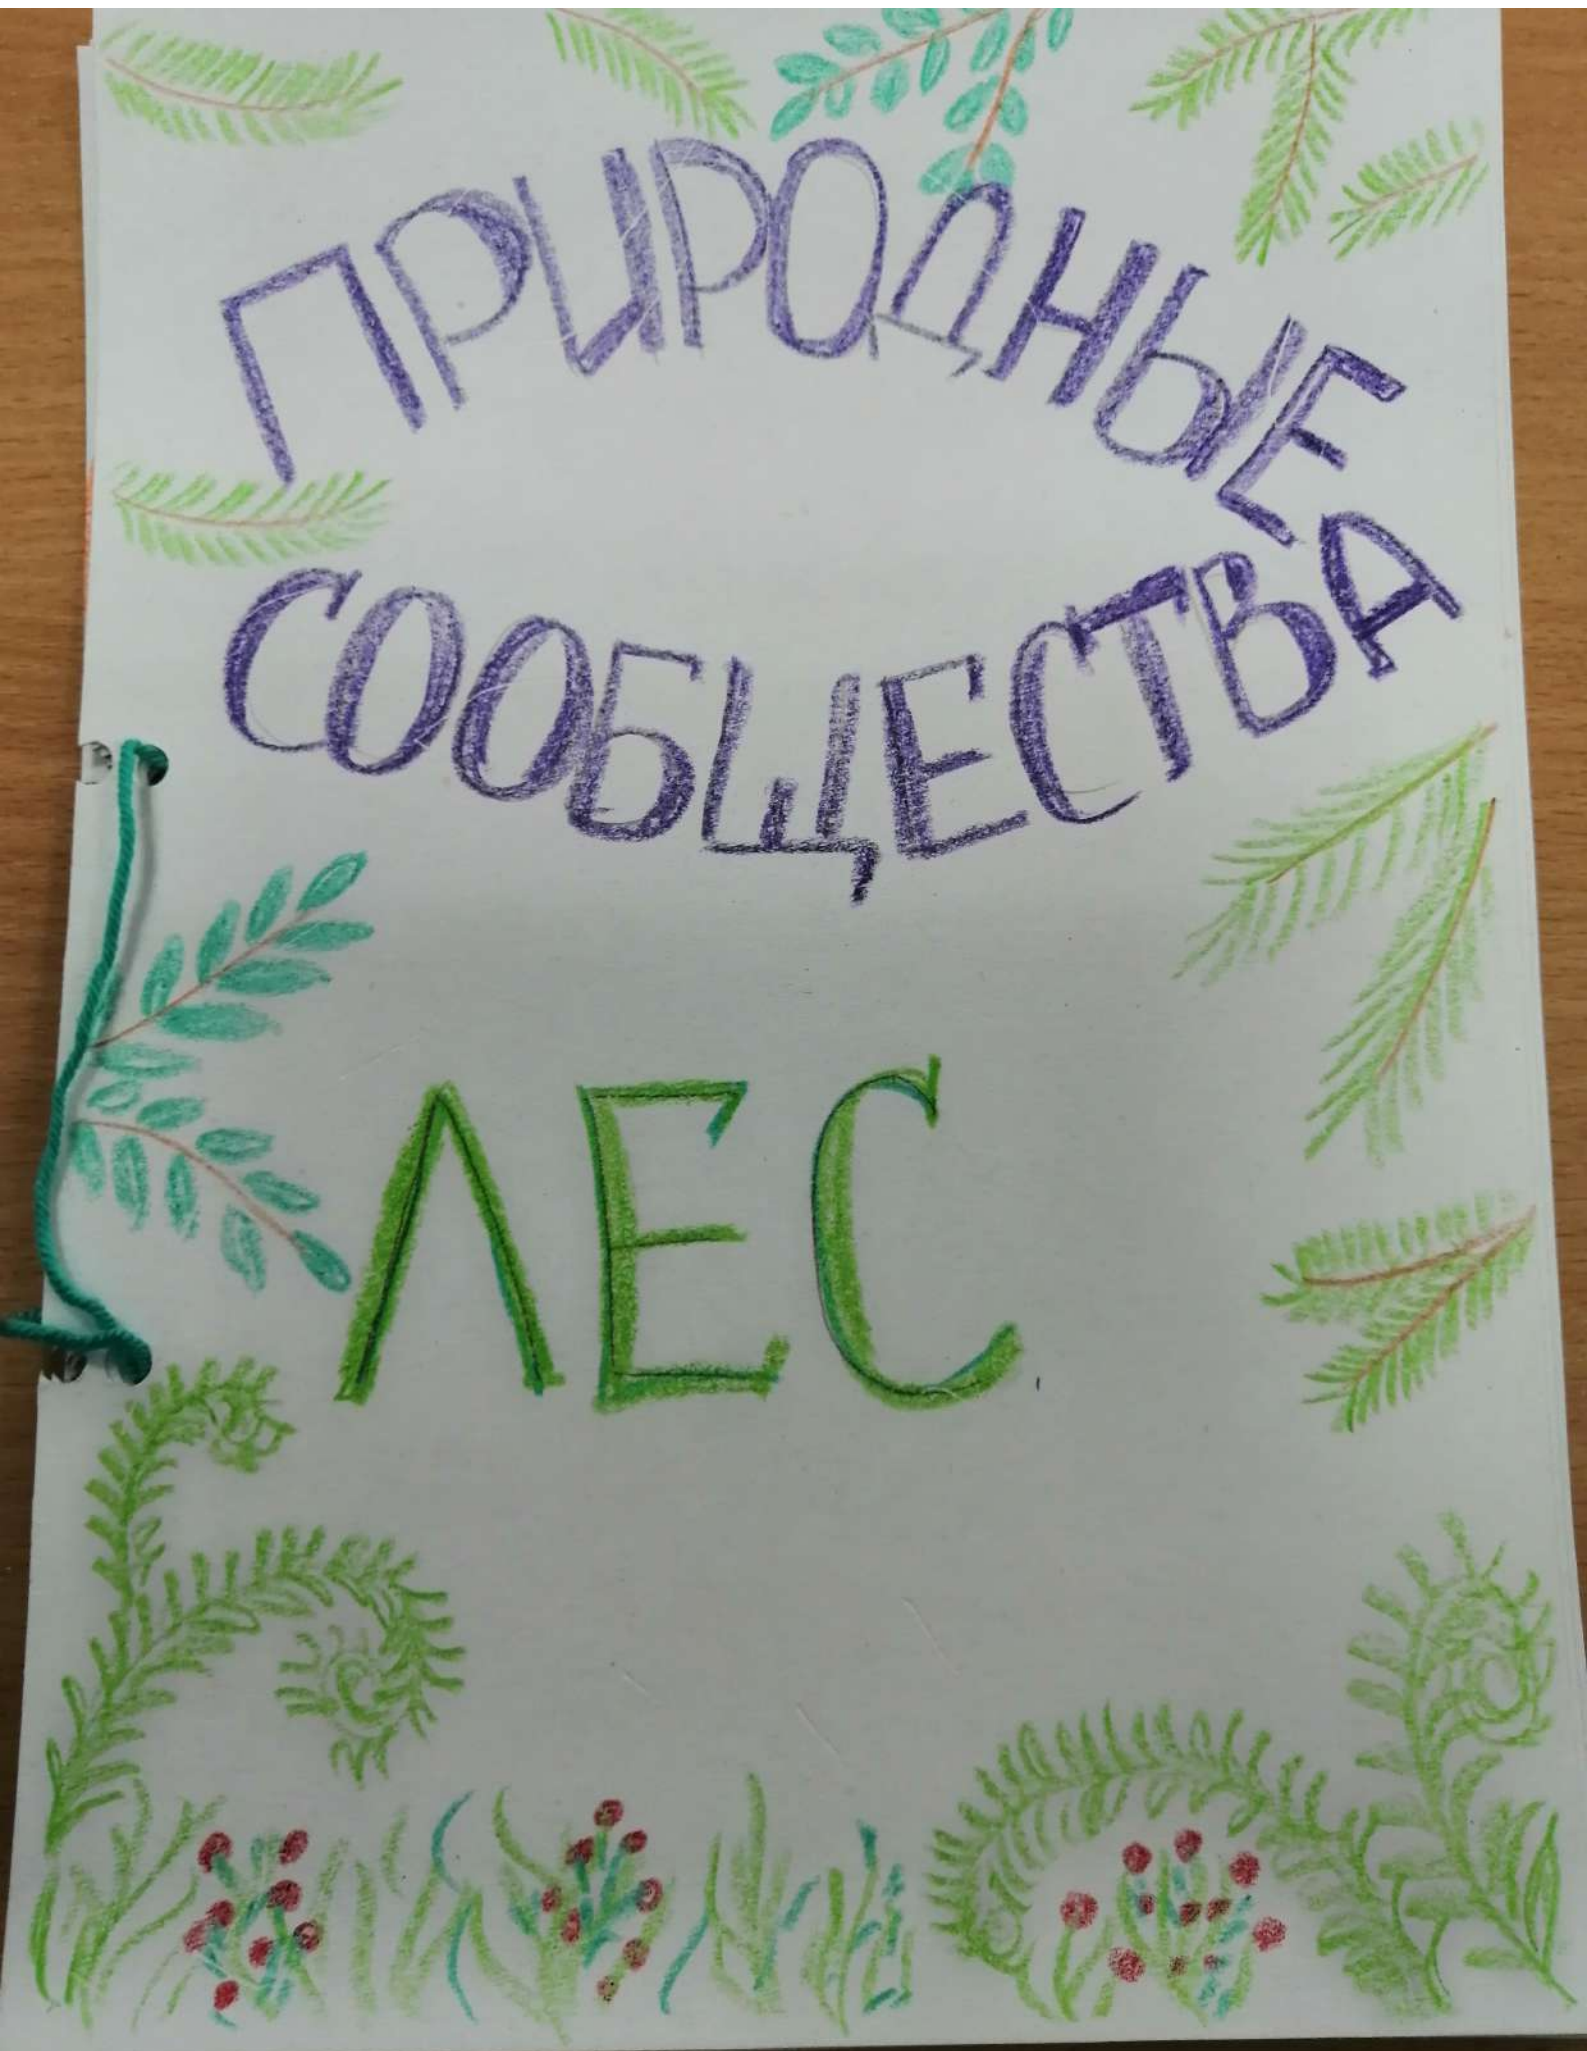 ПРИРОДНЫЕ
СООБЩЕСТВА
ЛЕС